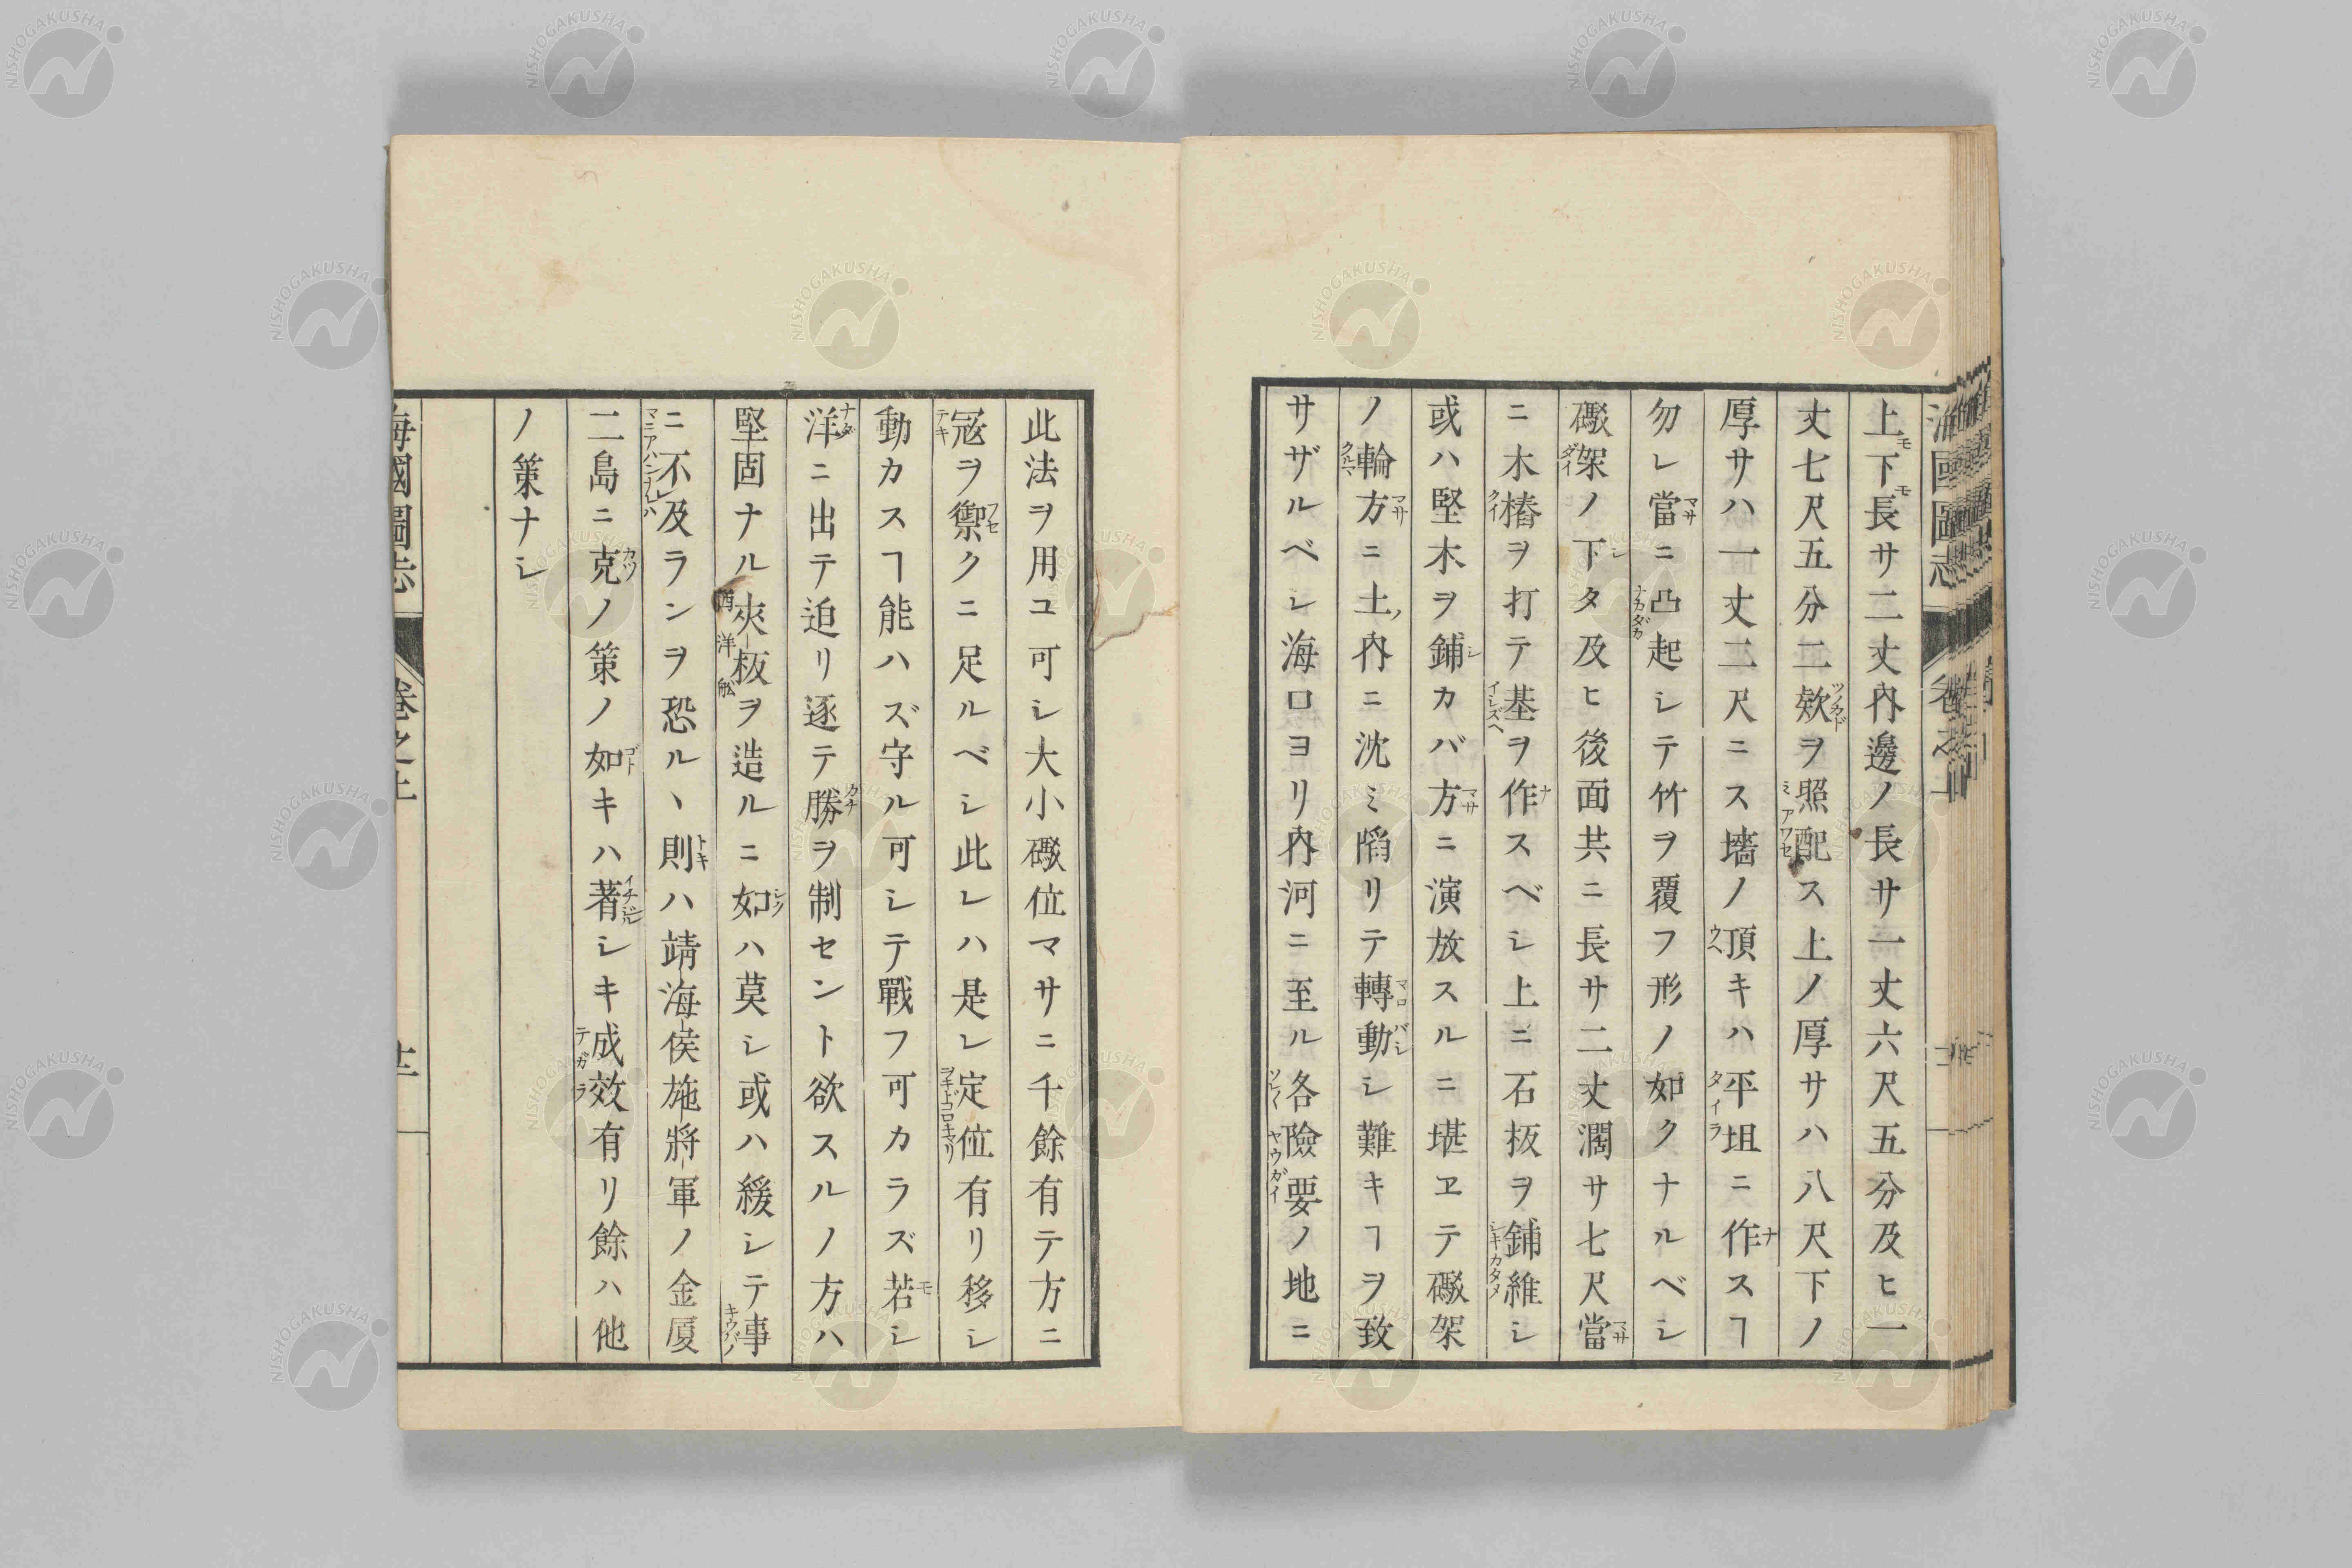 上下長サ二丈內邊ノ長サ一丈六尺五分及ヒ一
丈七尺五分二欵ヲ照配ス上ノ厚サハ八尺下ノ
厚サハ一丈二尺ニス墻ノ頂キハ平坦ニ作スヿ
勿レ當ニ凸起シテ竹ヲ覆フ形ノ如クナルベシ
礮架ノ下タ及ヒ後面共ニ長サ二丈濶サ七尺當
ニ木樁ヲ打テ基ヲ作スベシ上ニ石板ヲ鋪維シ
或ハ堅木ヲ鋪カバ方ニ演放スルニ堪ヱテ礮架
ノ輪方ニ土內ニ沈ミ䧟リテ轉動シ難キヿヲ致
サザルベシ海口ヨリ內河ニ至ル各險要ノ地ニ
此法ヲ用ユ可シ大小礮位マサニ千餘有テ方ニ
冦ヲ禦クニ足ルベシ此レハ是レ定位有リ移シ
動カスヿ能ハズ守ル可シテ戰フ可カラズ若シ
洋ニ出テ迫リ逐テ勝ヲ制セント欲スルノ方ハ
堅固ナル夾板ヲ造ルニ如ハ莫シ或ハ緩シテ事
ニ不及ランヲ恐ルヽ則ハ靖海侯施將軍ノ金厦
二島ニ克ノ策ノ如キハ著シキ成效有リ餘ハ他
ノ策ナシ
海國圖志 卷之上